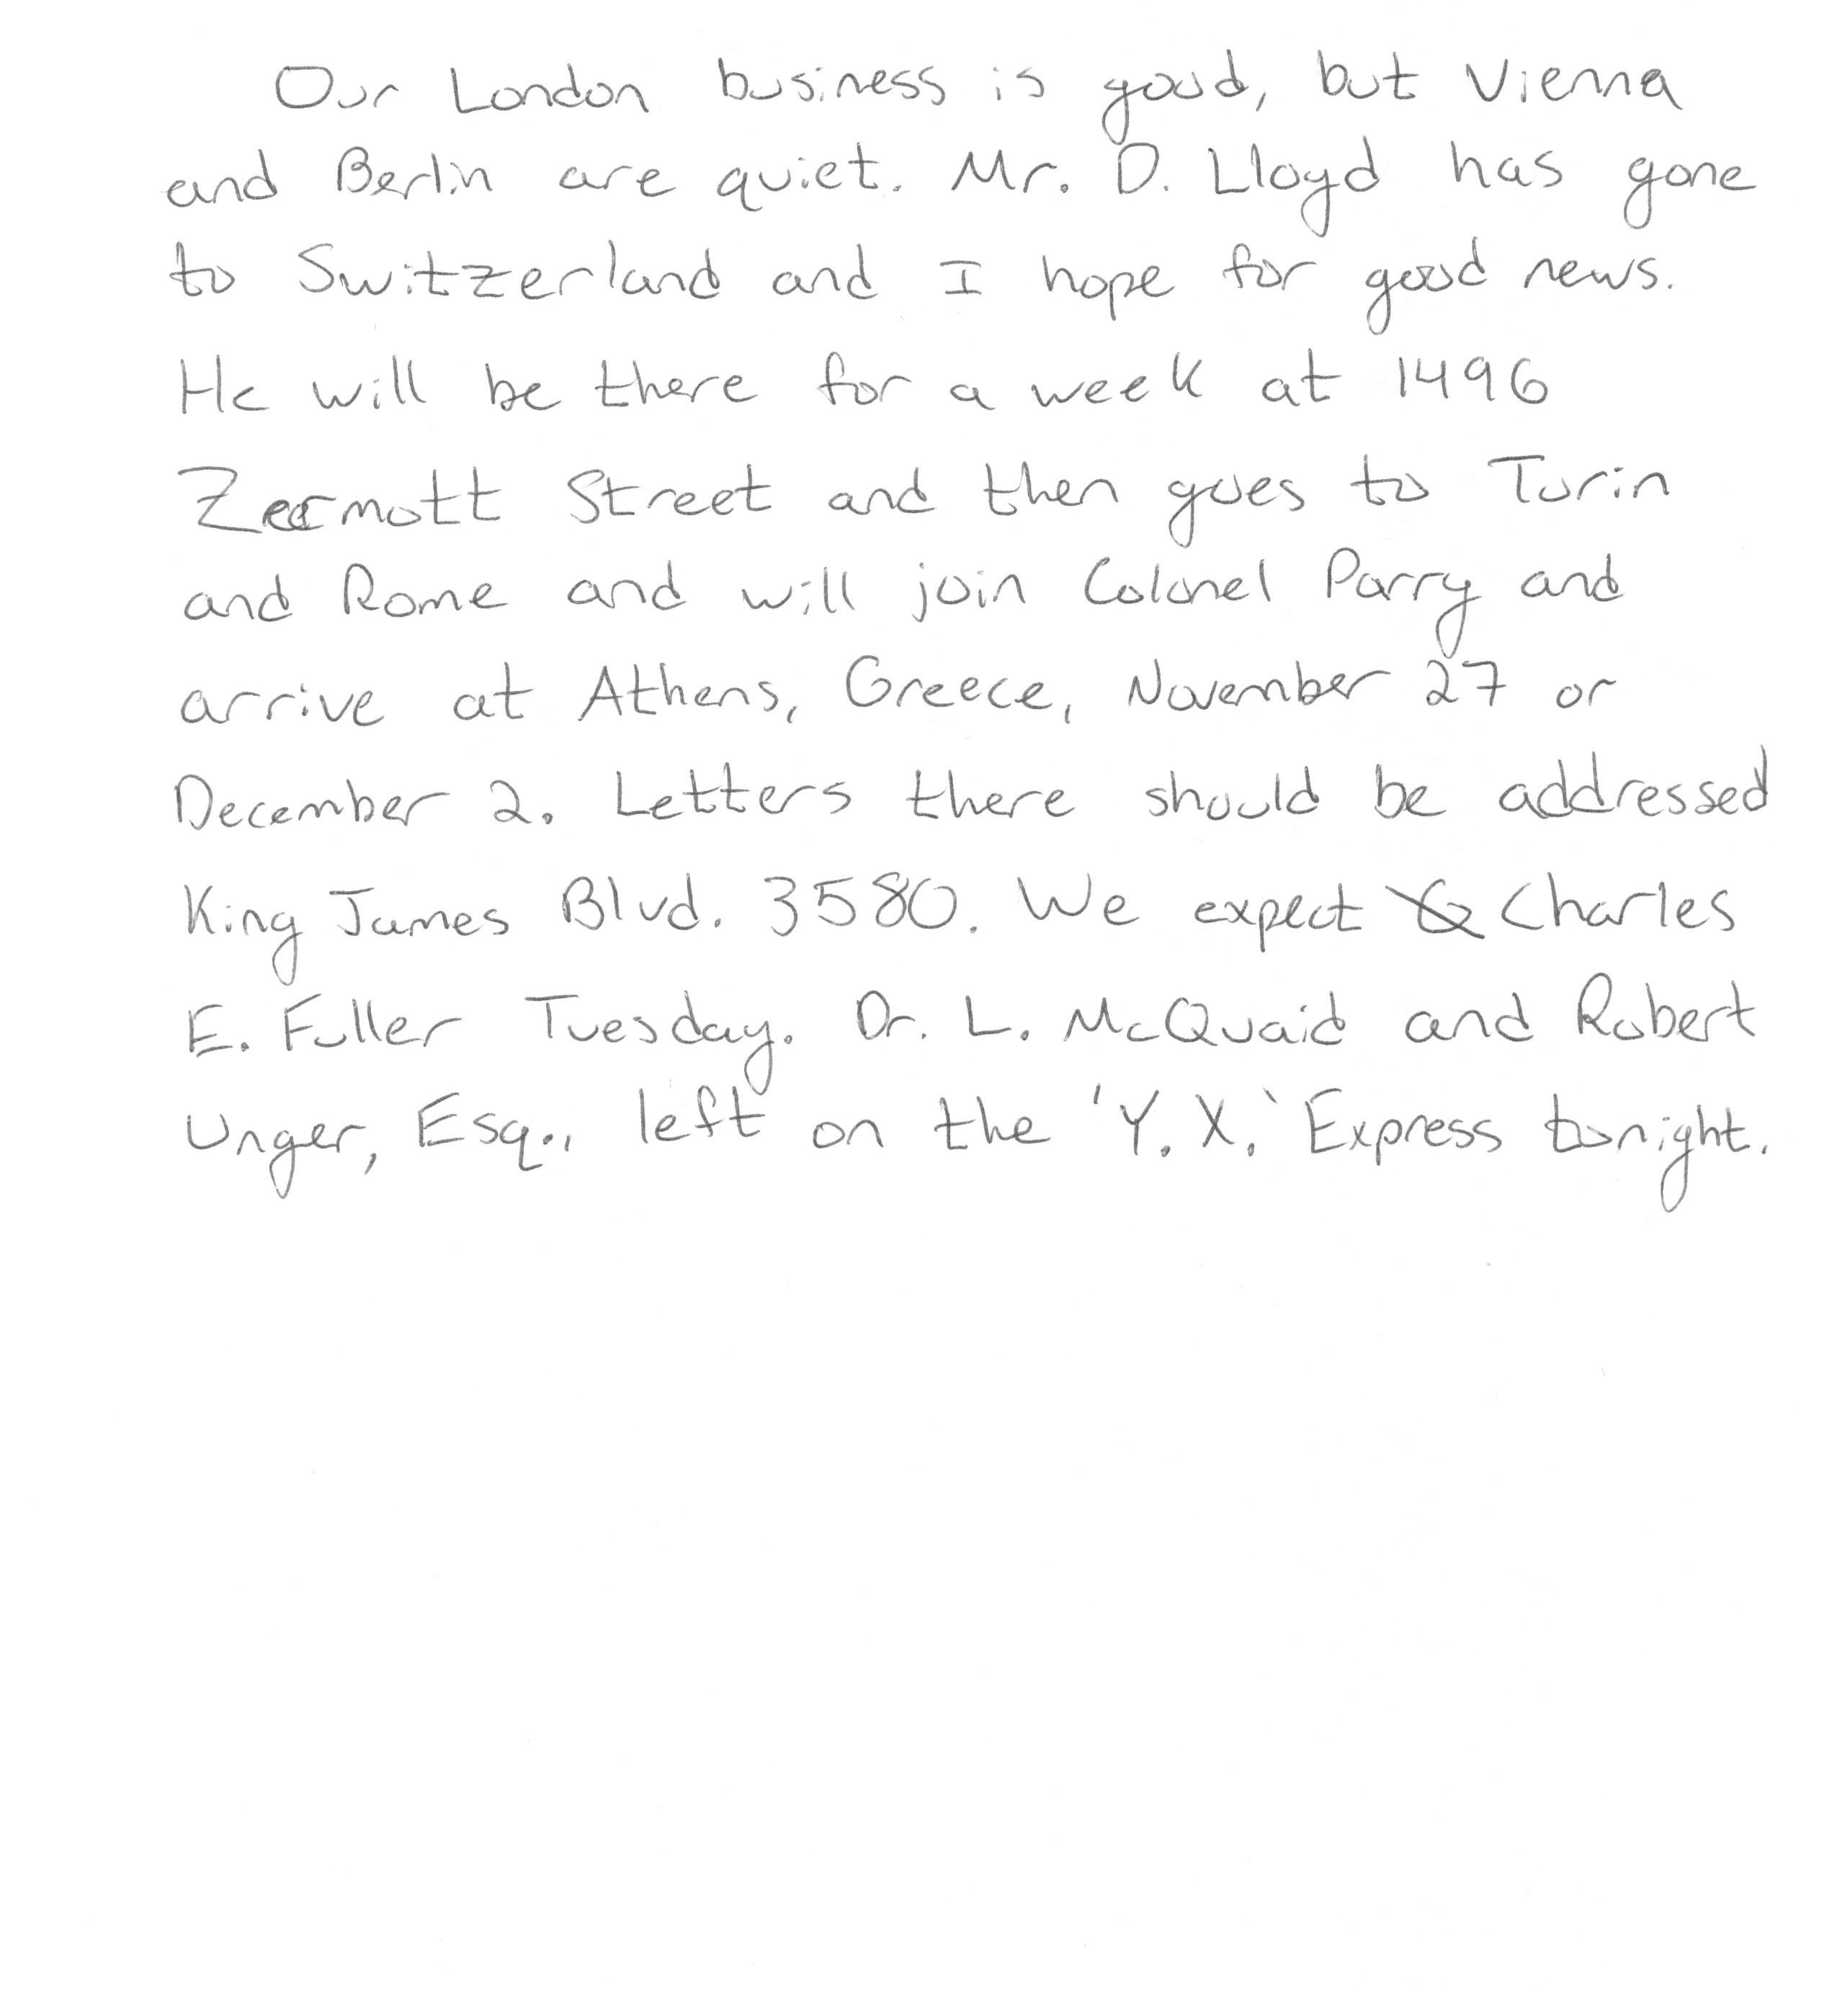 Our London business is good, but Vienna
and Berlin are quiet. Mr. D. Lloyd has gone
to Switzerland and I hope for good news.
He will be there for a week at 1496
Zermott Street and then goes to Turin
and Rome and will join Colonel Parry and
arrive at Athens, Greece, November 27 or
December 2. Letters there should be addressed
King James Blvd. 3580. We expect Charles
E. Fuller Tuesday. Dr. L. McQuaid and Robert
Unger, Esq., left on the 'Y.X.' Express tonight.